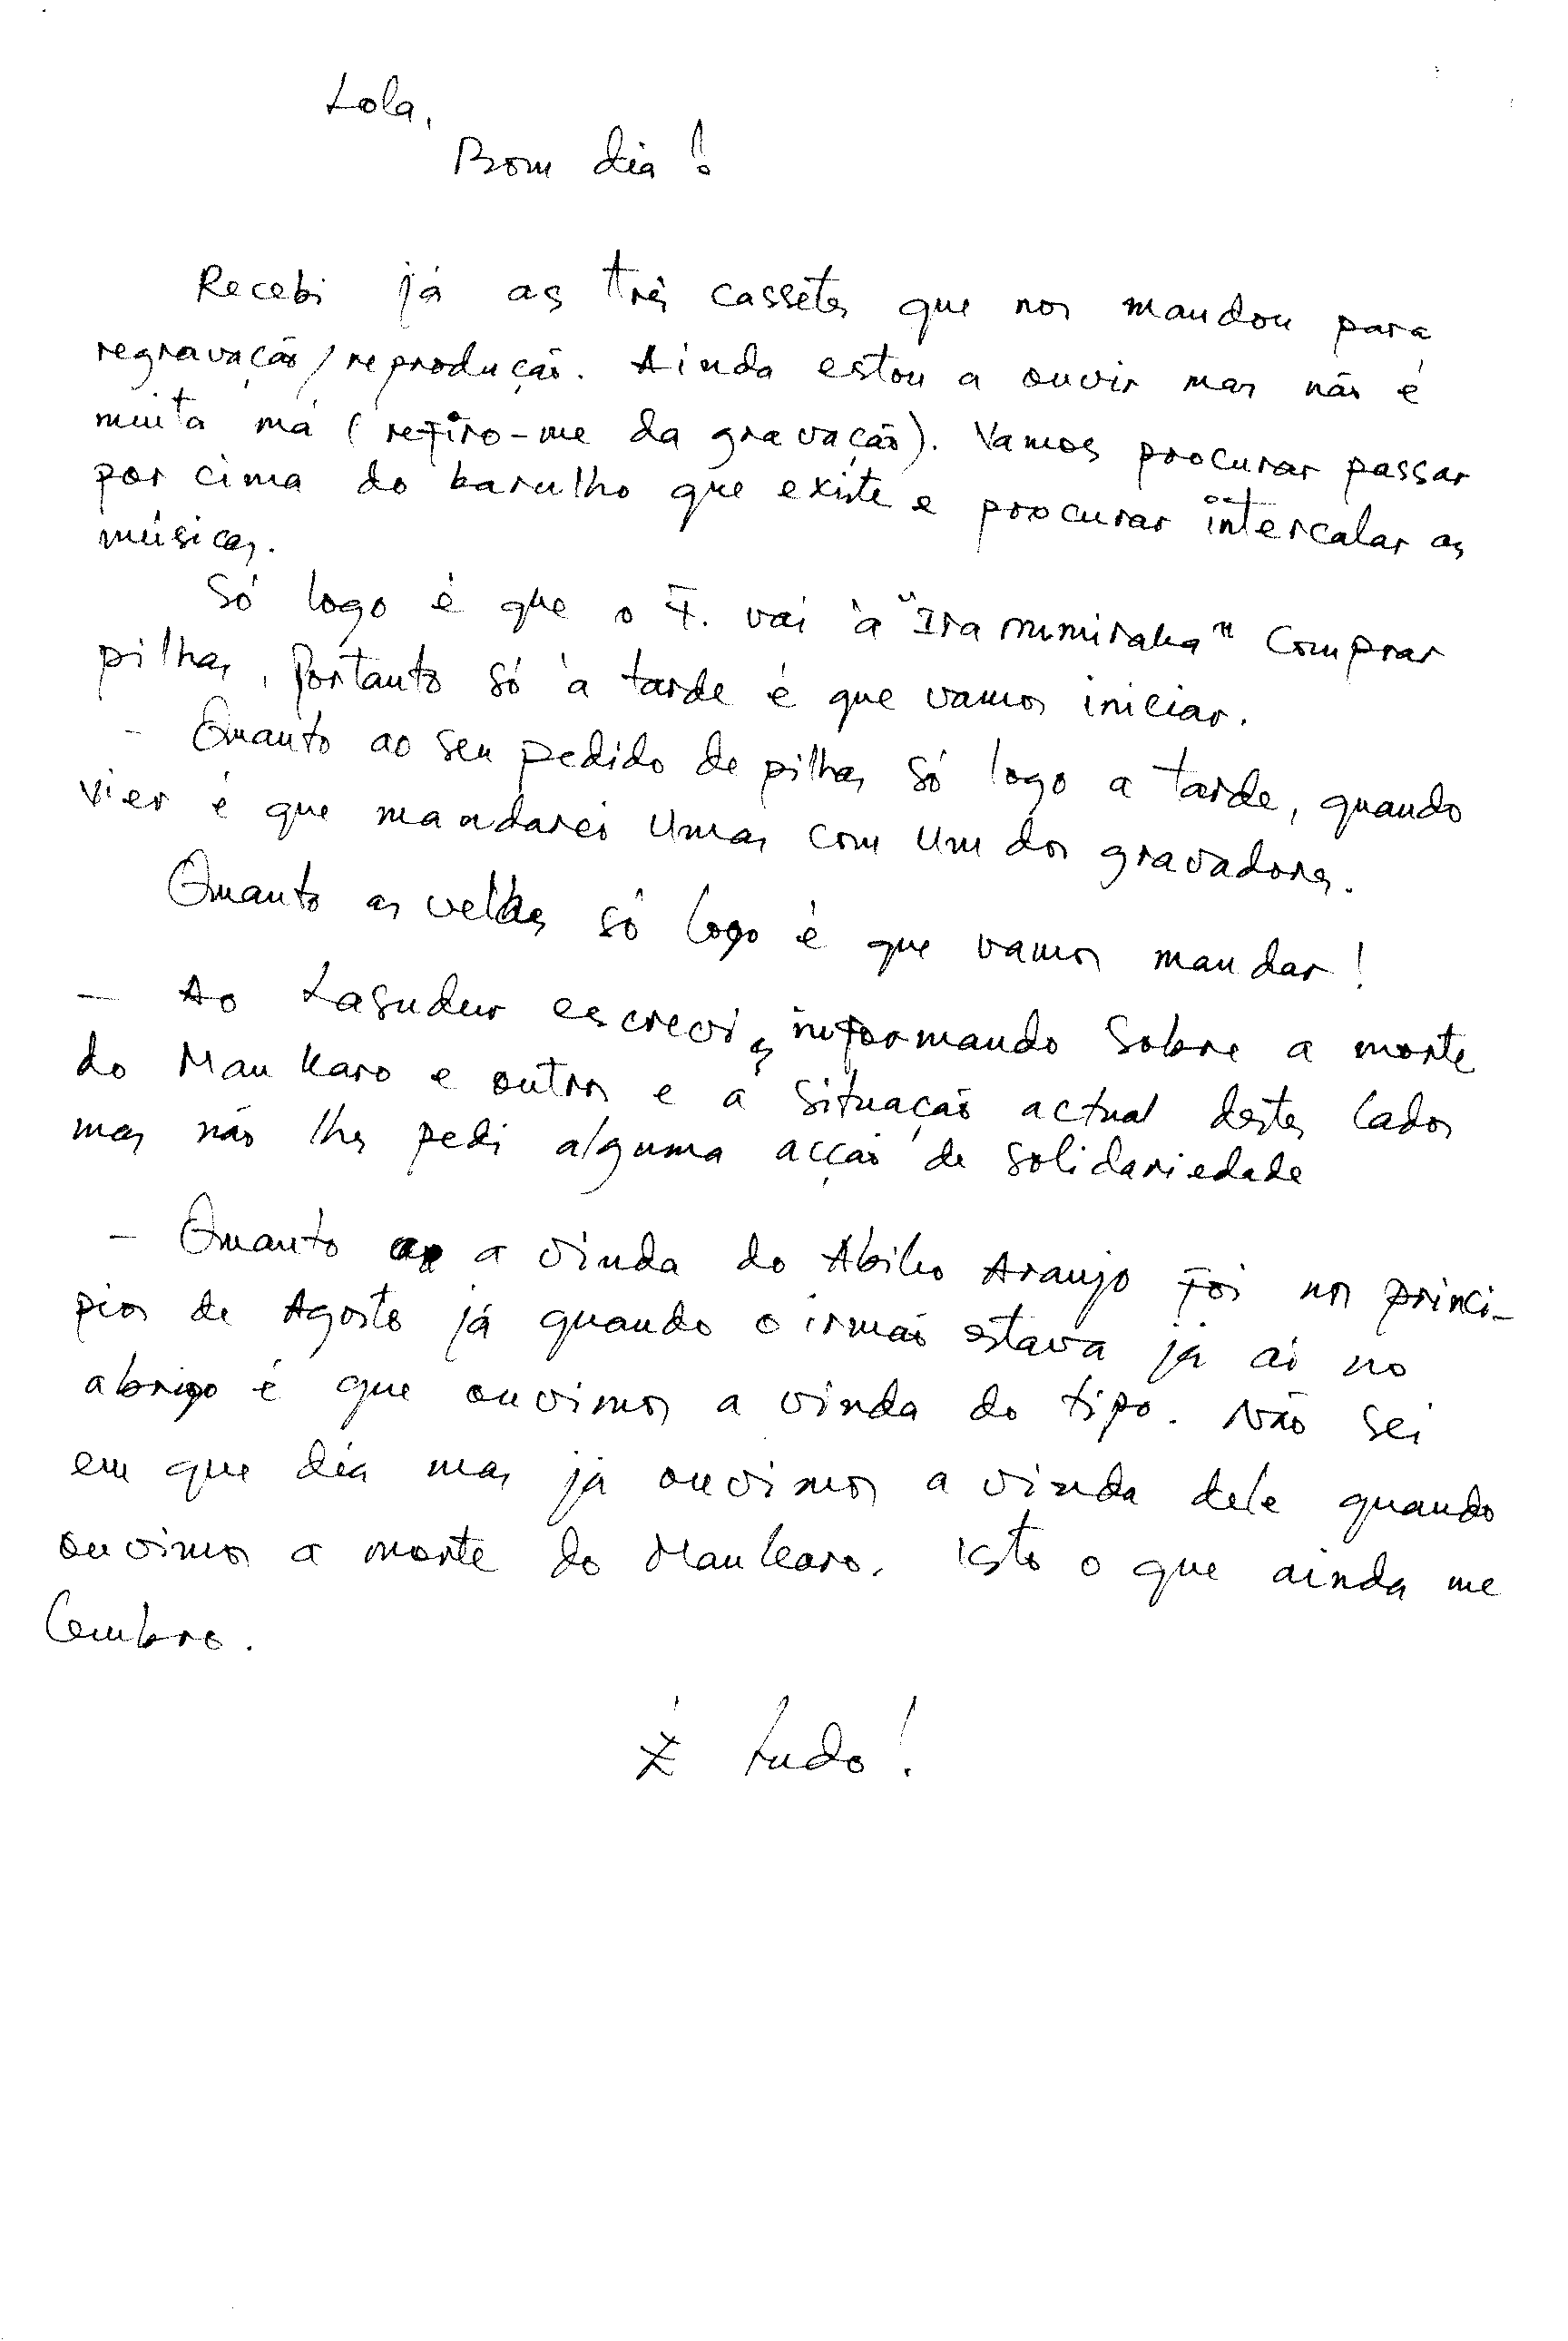 Lola,
Bom dia!
Recebi já as três cassetes que nos mandou para
regravação/reprodução. Ainda estou a ouvir mas não é
muita má (refiro-me da gravação). Vamos procurar passar
por cima do barulho que existe e procurar intercalar as
músicas.
Só logo é que o F. vai à "Ira mumiraka" comprar
pilhas, Portanto só à tarde é que vamos iniciar.
- Quanto ao seu pedido de pilhas só logo a tarde, quando
vier é que mandarei umas com um dos gravadores.
Quanto as velhas só logo é que vamos mandar!
- Ao Lasudur escrevi, informando sobre a morte
do Maukaro e outros e a situação actual destes lados
mas não lhes pedi alguma acção de solidariedade
- Quanto a vinda do Abilio Araujo foi nos princi-
pios de Agosto já quando o irmão estava já aí no
abrigo é que ouvimos a vinda do tipo. Não sei
em que dia mas já ouvimos a vinda dele quando
ouvimos a morte do Maukaro. Isto o que ainda me
lembro.
É tudo!